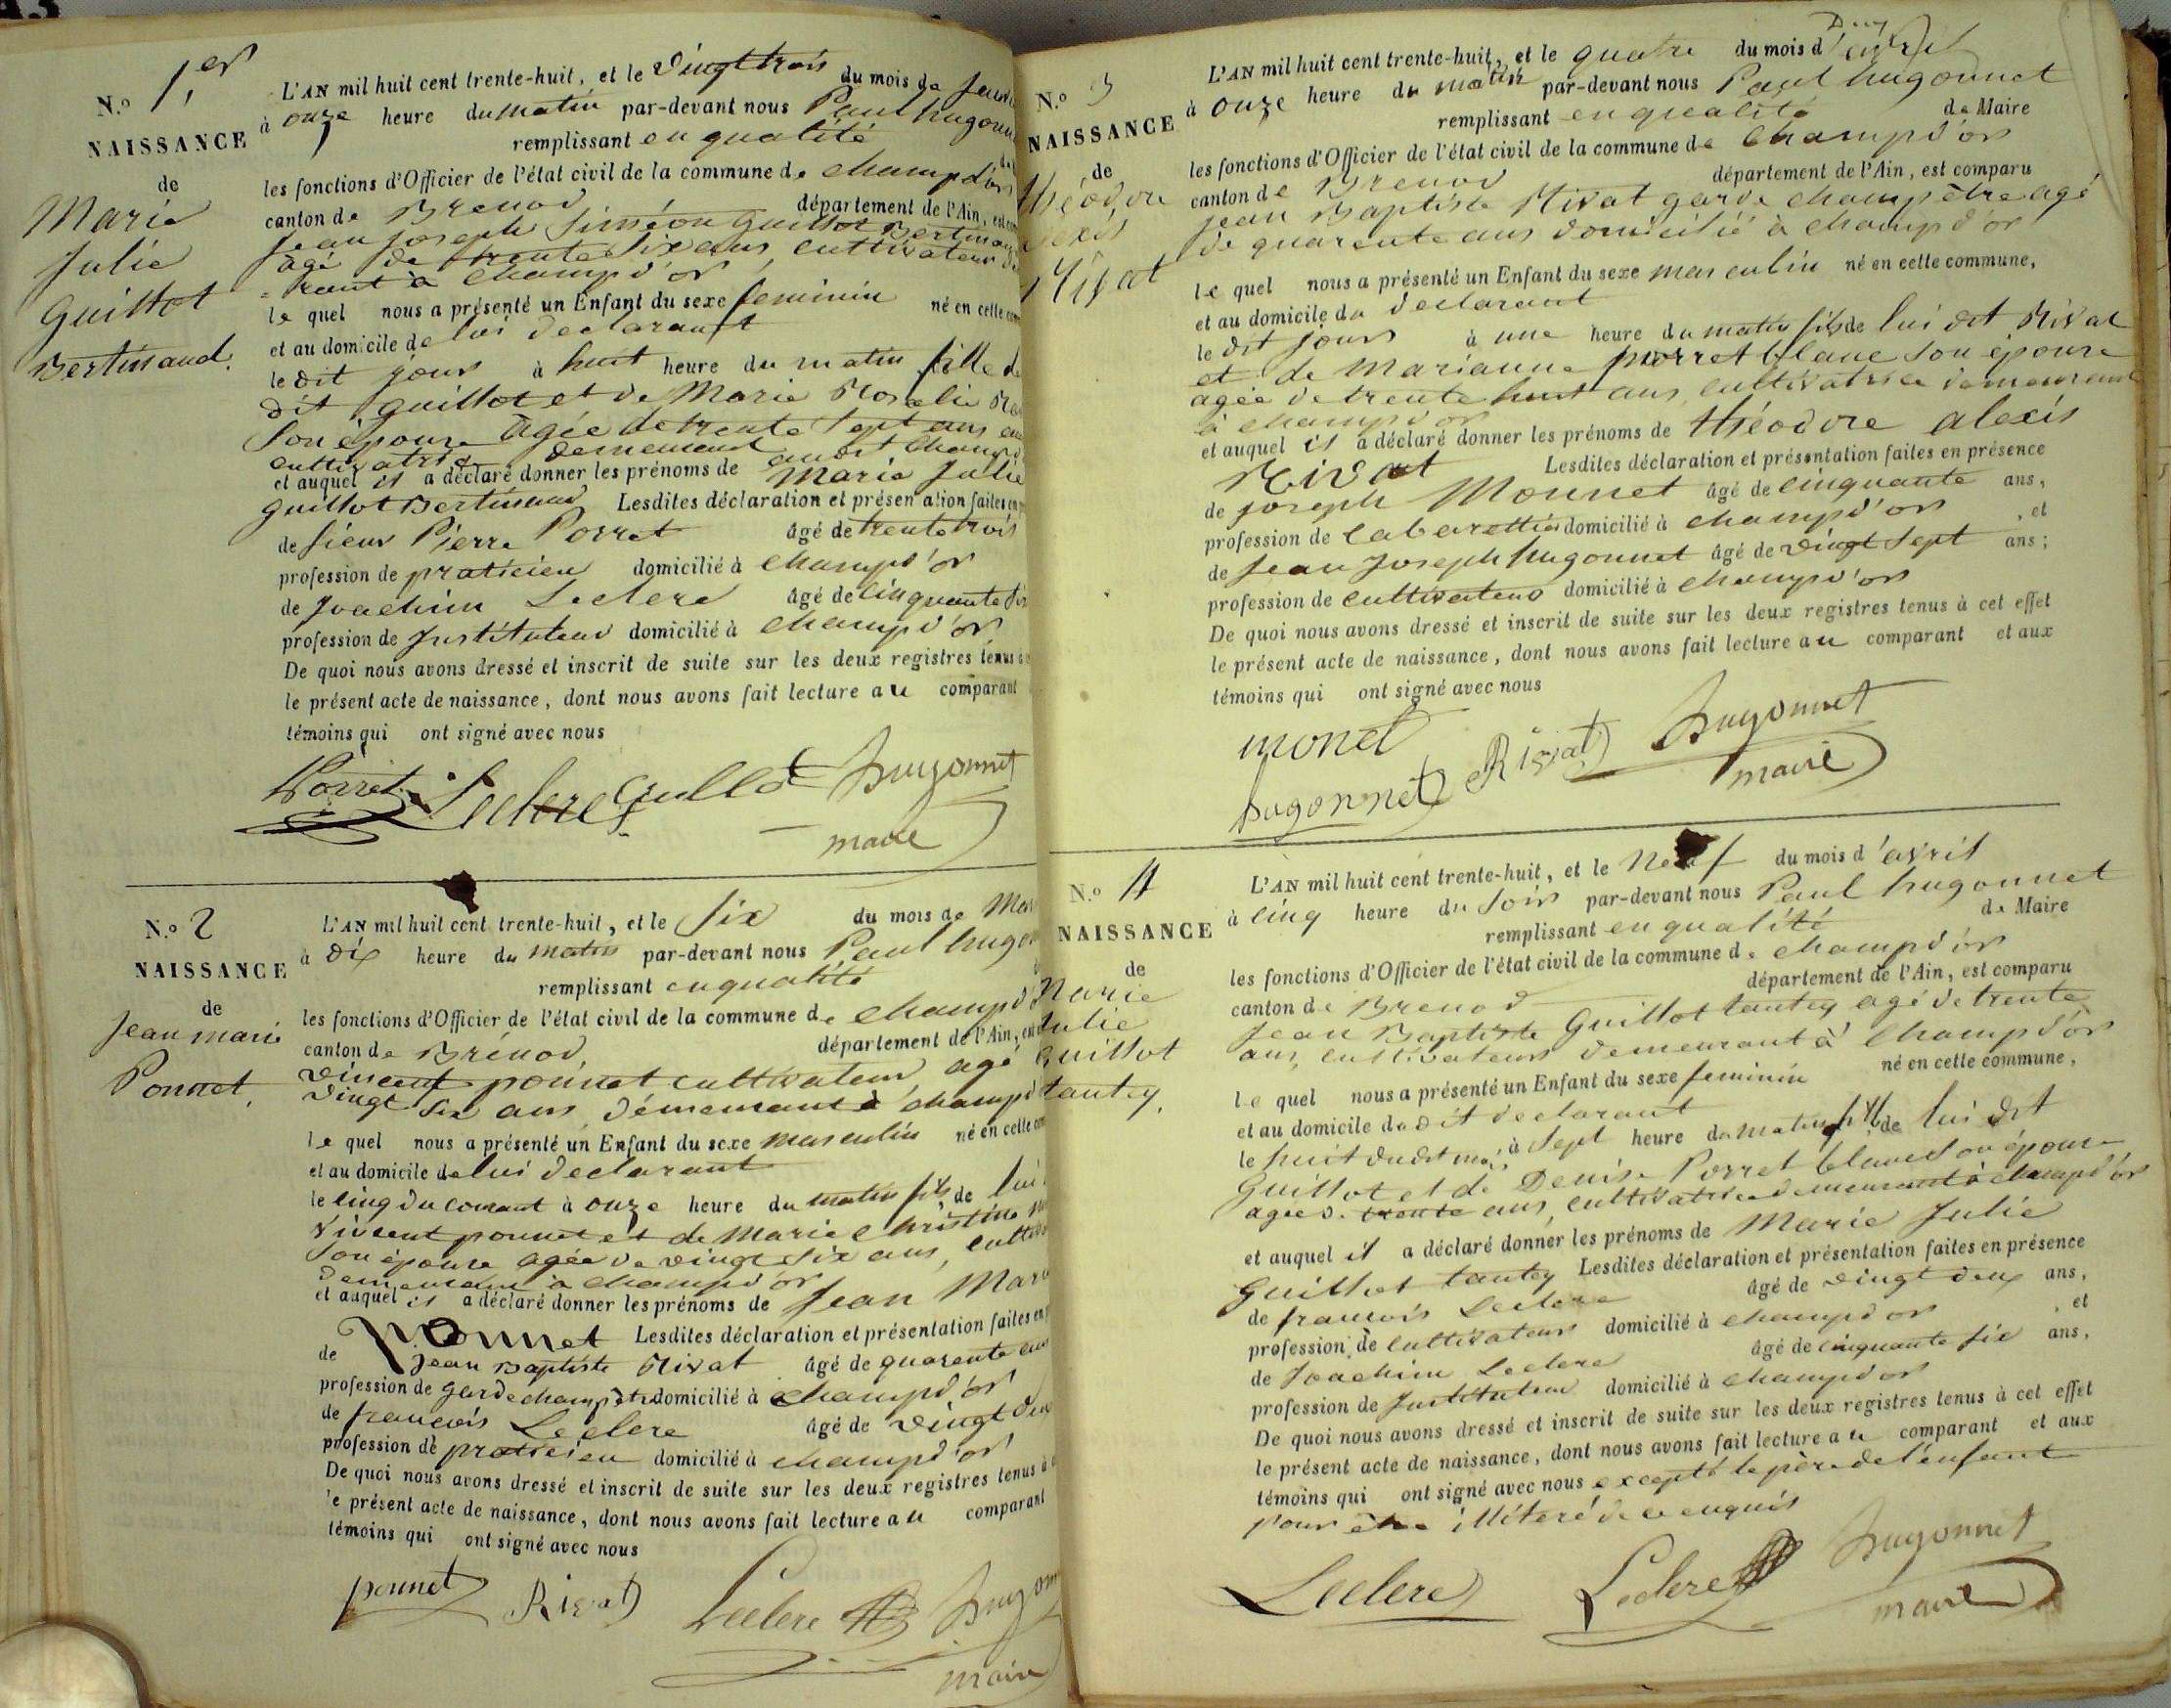 N.o 1.er
NAISSANCE
de
Marie
Julie
Guillot
Bertinand.
L'AN mil huit cent trente-huit, et le vingt trois du mois de
à onze heure du matin par-devant nous Paul hugonn
remplissant en qualité
les fonctions d'Officier de l'état civil de la commune de champd'or
canton de Brenod département de l'Ain,
Jean joseph Siméon Guillot Bertinand
âgé de trente six ans, cultivateur
rant à champd'or
le quel nous a présenté un Enfant du sexe feminin né en cette com
et au domicile de lui declarant
le dit jour à huit heure du matin fille de
dit guillot et de Marie Rosalie
Son épouse âgée de trente sept ans
cultivatrice demeurant champ
et auquel il a déclaré donner les prénoms de Marie Julie
guillot Bertinand Lesdites déclaration et présentation faites en
de sieur Pierre Porret âgé de trente trois
profession de praticien domicilié à champd'or
de Joachim Leclerc âgé de cinquante six
profession de Instituteur domicilié à champd'or
De quoi nous avons dressé et inscrit de suite sur les deux registres tenus
le présent acte de naissance, dont nous avons fait lecture au comparant
témoins qui ont signé avec nous
Porret Leclerc Guillot hugonnet
maire
N.o 2
NAISSANCE
de
Jean marie
Ponnet.
L'AN mil huit cent trente-huit, et le six du mois de Mar
à dix heure du matin par-devant nous Paul hugon
remplissant en qualité
les fonctions d'Officier de l'état civil de la commune de champd'
canton de Brénod département de l'Ain, est
vincent ponnet cultivateur agé
vingt six ans, démeurant à champd
le quel nous a présenté un Enfant du sexe masculin né en cette com
et au domicile de lui declarant
le cinq du courant à onze heure du matin fils de lui
vincent ponnet et de Marie christine
Son épouse agée de vingt six ans, cultiv
demeurant à champd'or
et auquel il a déclaré donner les prénoms de Jean Mari
Ponnet Lesdites déclaration et présentation faites en
de Jean Baptiste Rivat âgé de quarente ans
profession de garde champêtre domicilié à champd'or
de francois Leclerc âgé de vingt deu
profession de praticien domicilié à champd'or
De quoi nous avons dressé et inscrit de suite sur les deux registres tenus à
le présent acte de naissance, dont nous avons fait lecture au comparant
témoins qui ont signé avec nous
ponnet Rivat Leclerc hugon
maire
N.o 3
NAISSANCE
de
théodore
alexis
Rivat
L'AN mil huit cent trente-huit, et le quatre du mois d'avril
à onze heure du matin par-devant nous Paul hugonnet
remplissant en qualité de Maire
les fonctions d'Officier de l'état civil de la commune de champd'or
canton de Brenod département de l'Ain, est comparu
Jean Baptiste Rivat garde champêtre agé
de quarente ans domicilié à champd'or
le quel nous a présenté un Enfant du sexe masculin né en cette commune,
et au domicile du declarant
le dit jour à une heure du matin fils de lui dit Rivat
et de Marianne porret blanc son épouse
agée de trente huit ans, cultivatrice demeurant
à champd'or
et auquel il a déclaré donner les prénoms de théodore alexis
Rivat Lesdites déclaration et présentation faites en présence
de joseph Monnet âgé de cinquante ans,
profession de Cabarettier domicilié à champd'or , et
de Jean Joseph hugonnet âgé de vingt sept ans;
profession de cultivateur domicilié à champd'or
De quoi nous avons dressé et inscrit de suite sur les deux registres tenus à cet effet
le présent acte de naissance, dont nous avons fait lecture au comparant et aux
témoins qui ont signé avec nous
monet Rivat hugonnet
hugonnet maire
N.o 4
NAISSANCE
de
Marie
Julie
Guillot
tantey.
L'AN mil huit cent trente-huit, et le Neuf du mois d'avril
à cinq heure du soir par-devant nous Paul hugonnet
remplissant en qualité de Maire
les fonctions d'Officier de l'état civil de la commune de champd'or
canton de Brenod département de l'Ain, est comparu
Jean Baptiste Guillot tantey agé de trente
ans, cultivateur demeurant à champd'or
le quel nous a présenté un Enfant du sexe feminin né en cette commune,
et au domicile du dit declarant
le huit dudit mois à sept heure du matin fille de lui dit
Guillot et de Denise Porret blanc son épouse
agée de trente ans, cultivatrice demeurant à champd'or
et auquel il a déclaré donner les prénoms de Marie Julie
Guillot tantey Lesdites déclaration et présentation faites en présence
de francois Leclerc âgé de vingt deux ans,
profession de cultivateur domicilié à champd'or , et
de Joachim Leclerc âgé de cinquante six ans,
profession de Instituteur domicilié à champd'or
De quoi nous avons dressé et inscrit de suite sur les deux registres tenus à cet effet
le présent acte de naissance, dont nous avons fait lecture au comparant et aux
témoins qui ont signé avec nous excepté le père de l'enfant
pour être illiteré de ce enquis
Leclerc Leclerc hugonnet
maire